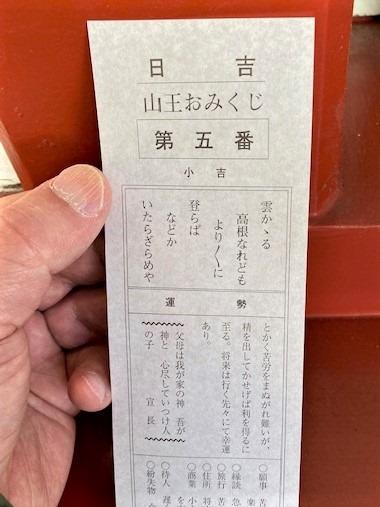 日　吉
山王おみくじ
第五番
小吉
雲かゝる
高根なれども
より〱に
登らば
などか
いたらざらめや
運　勢
とかく苦労をまぬがれ難いが、
精を出してかせげば利を得るに
至る。将来は行く先々にて幸運
あり。
父母は我が家の神　吾が
神と　心尽していつけ人
の子　宣長
○願事　苦
○縁談　急
○旅行　苦
○住所　将
○商業　小
を
○待人　遅
○紛失物